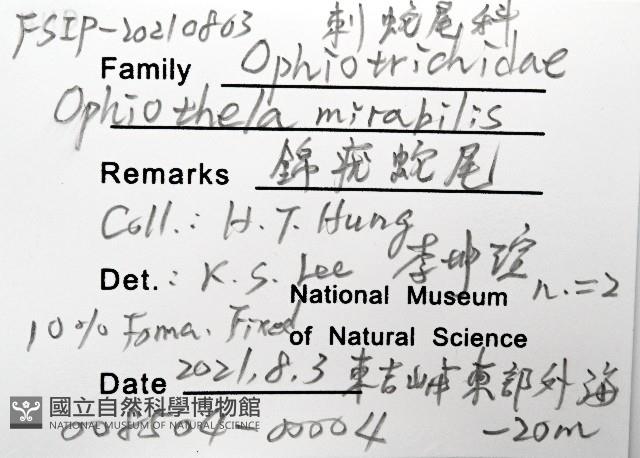 FSIP-20210803 刺蛇尾科
Family Ophiotrichidae
Ophiothela mirabilis
Remarks 錦疣蛇尾
Coll.: H. T. Hung
Det.: K. S. Lee 李坤瑄
National Museum n.=2
10% Forma. Fixed of Natural Science
Date 2021.8.3 東吉嶼東部外海
國立自然科學博物館
NATIONAL MUSEUM OF NATURAL SCIENCE
008504-00004 -20m